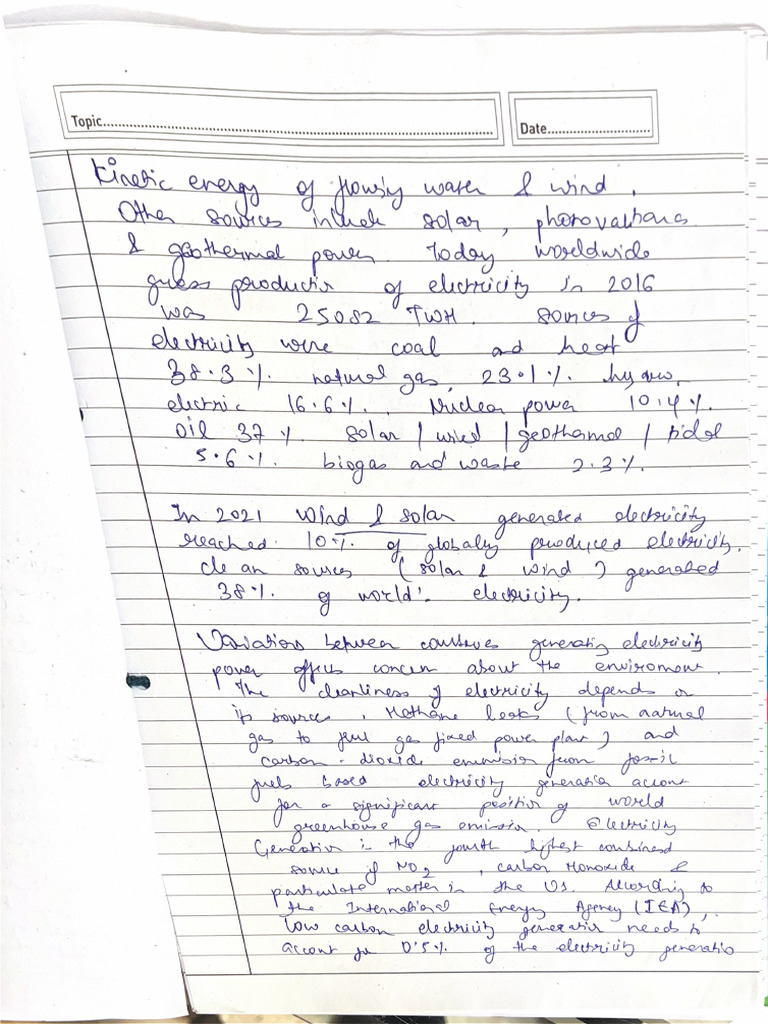 Topic
Date
Kinetic energy of flowing water & wind.
Other sources include solar, photovaltanos
& geothermal power. Today worldwide
guess production of electricity in 2016
was 25082 TWH. Sources of
electricity were coal and heat
38.3%. natural gas, 23.1%. hydro,
electric 16.6%. Nuclear power 10.4%.
oil 37%. solar / wind / geothermal / tidal
5.6%. biogas and waste 2.3%.
In 2021 wind & solar generated electricity
reached 10%. of globally produced electricity.
clean sources (solar & wind) generated
38%. of world's electricity.
Variations between countries generating electricity
power effects concern about the enviroment.
The cleanliness of electricity depends on
its sources, Methane leaks (from natural
gas to fuel gas fixed power plant) and
carbon-dioxide emmision from fossil
fuels based electricity generation account
for a significant position of world
greenhouse gas emission. Electricity
Generation is the fourth highest combined
source of NO2, carbon Monoxide &
particulate matter in the US. According to
the International Energy Agency (IEA),
low carbon electricity generation needs to
account for 0.5%. of the electricity generatio